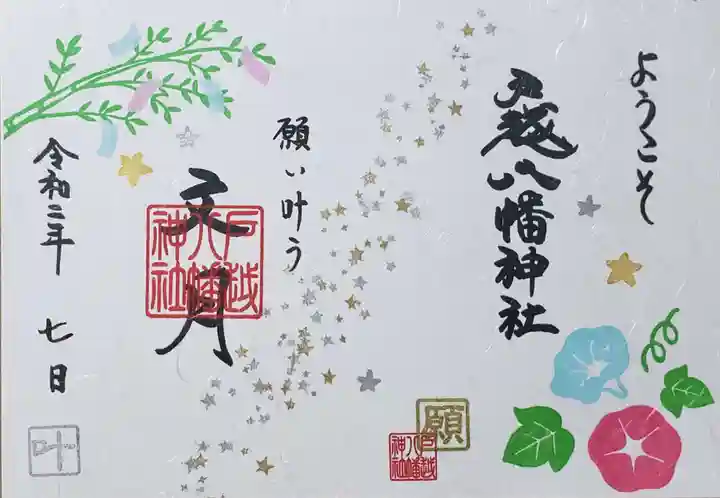 ようこそ
戸越八幡神社
願い叶う
文月
戸越
八幡
神社
令和二年
七日
願
戸越
八幡
神社
叶